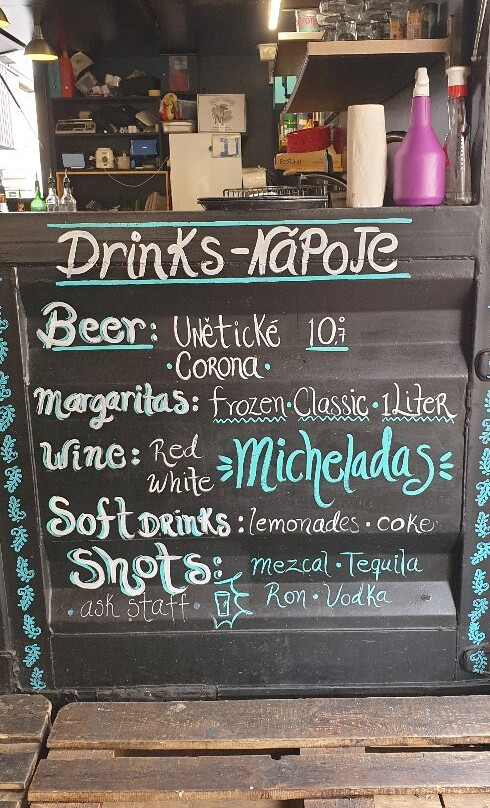 Drinks-NáPoJe
Beer: Unětické 10°
·Corona·
Margaritas: frozen·Classic·1Liter
Wine: Red
White
Micheladas
Soft DRINKS: lemonades·coke
Shots: mezcal·Tequila
·ask staff· Ron·Vodka